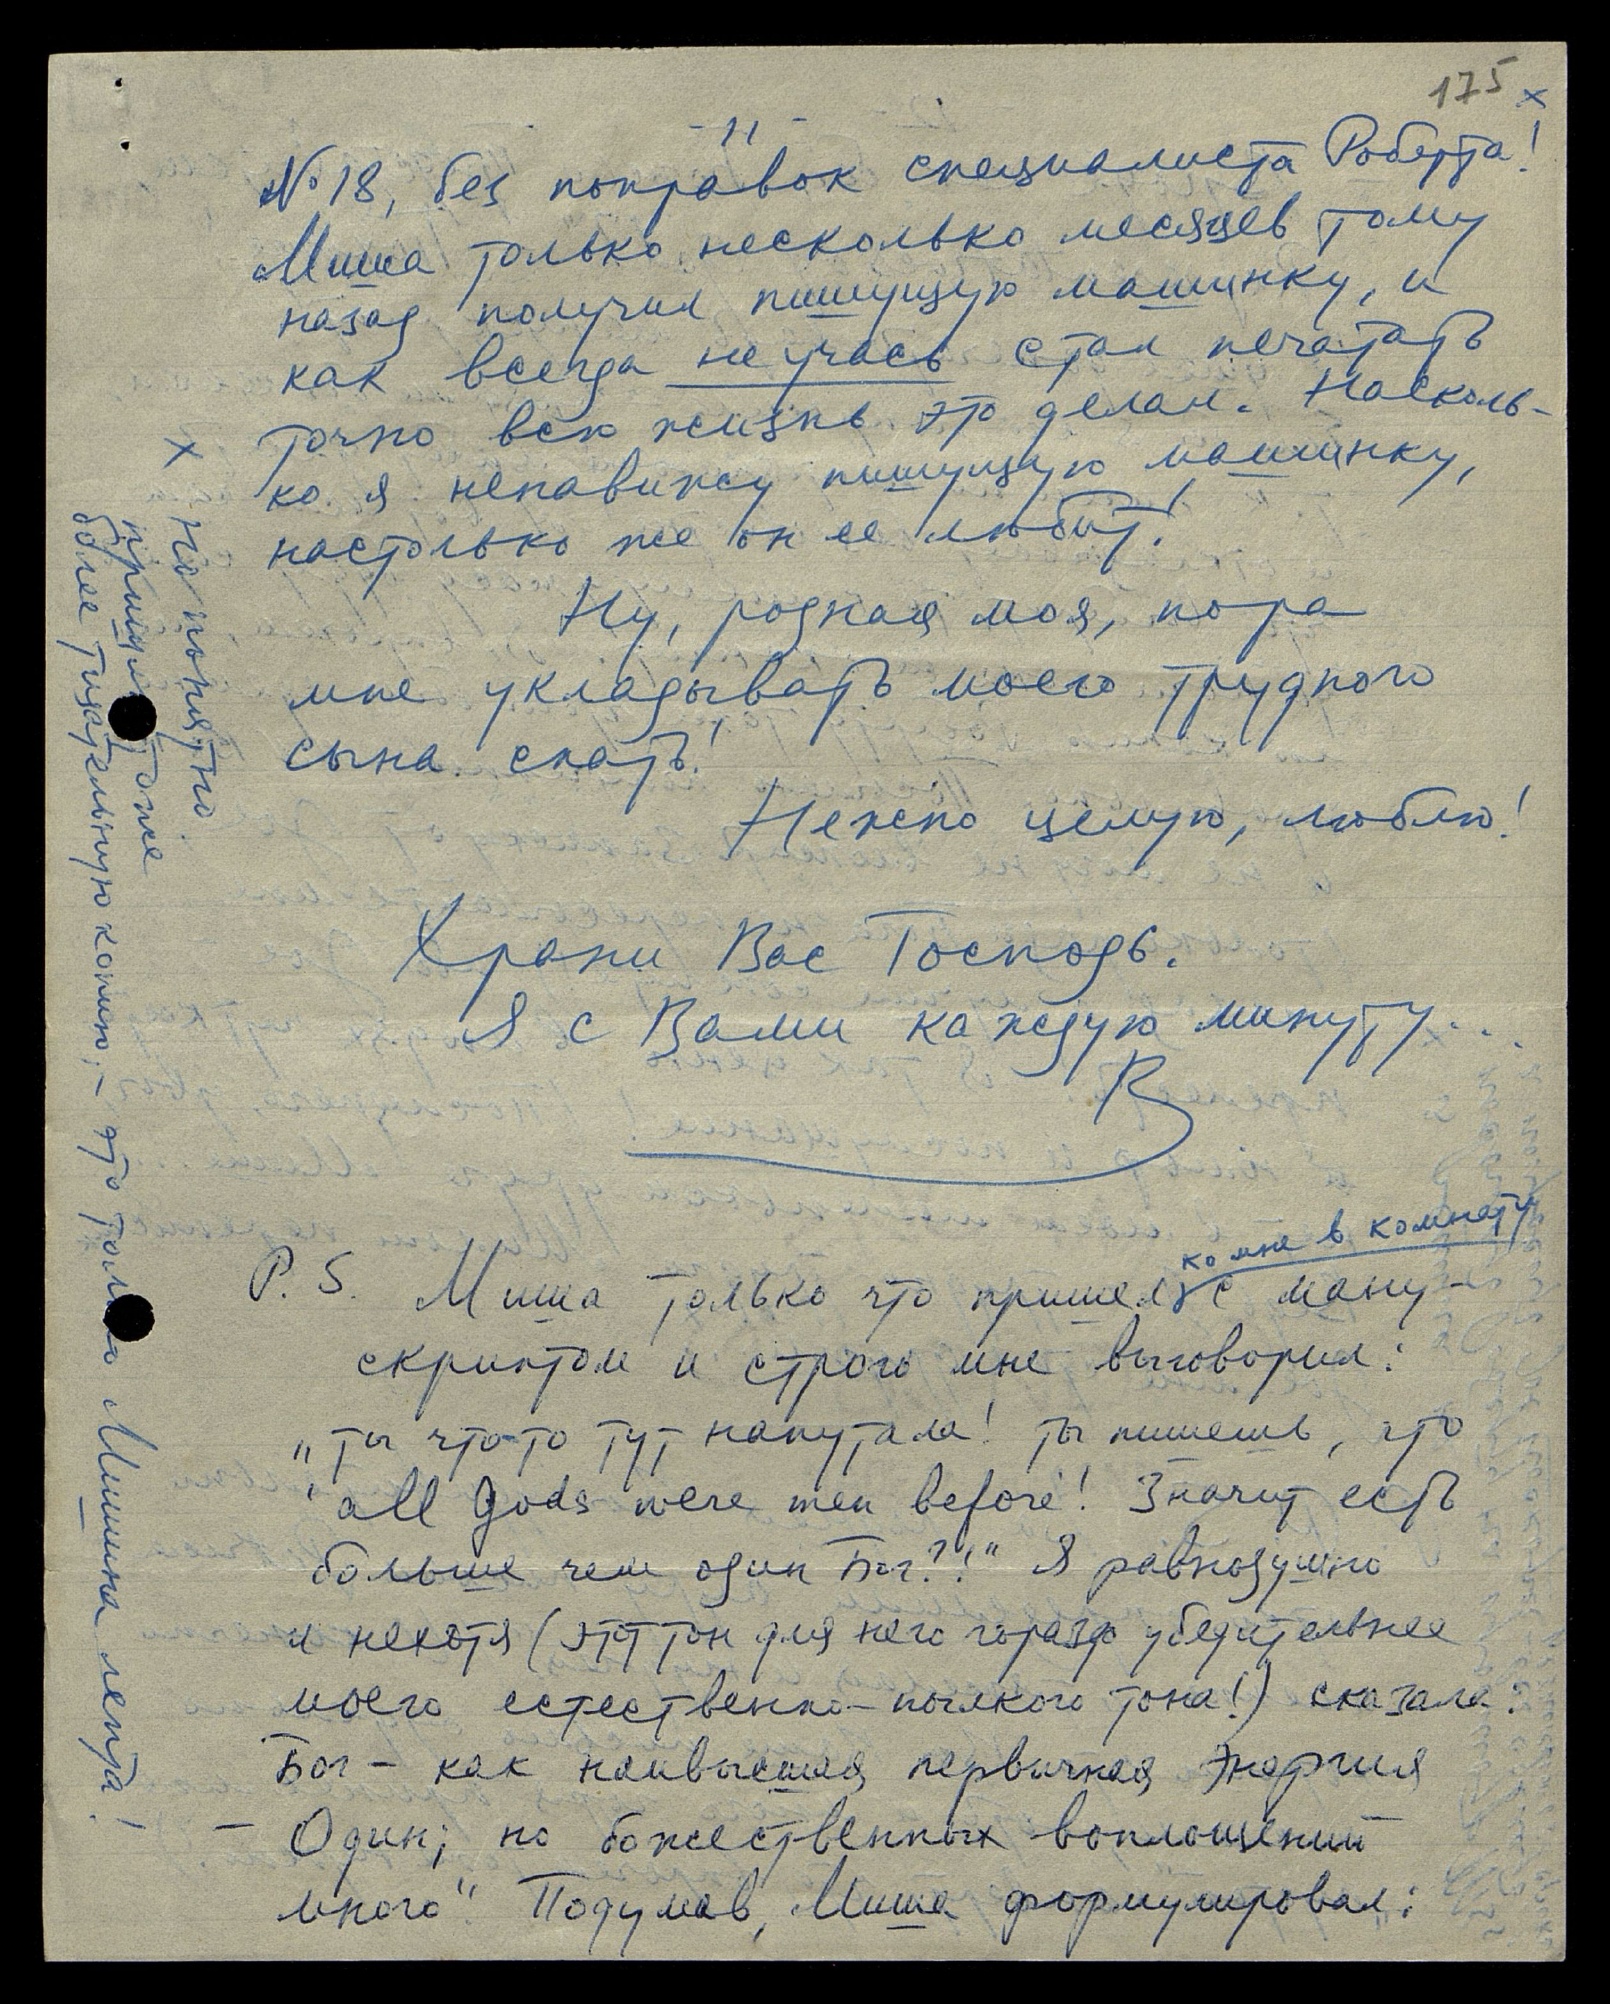 175 x
- 11 -
№ 18, без поправок специалиста Роберта!
Миша только несколько месяцев тому
назад получил пишущую машинку, и
как всегда не учась стал печатать
точно всю жизнь это делал. Насколь-
ко я ненавижу пишущую машинку,
настолько же он ее любит!
Ну, родная моя, пора
мне укладывать моего трудного
сына спать!
Нежно целую, люблю!
Храни Вас Господь.
Я с Вами каждую минуту...
В
ко мне в комнату
P. S. Миша только что пришел с ману-
скриптом и строго мне выговорил:
„ты что-то тут напутала! ты пишешь, что
'all Gods were men before'! Значит есть
больше чем один Бог?!" Я равнодушно
и нехотя (этот тон для него гораздо убедительнее
моего естественно-пылкого тона!) сказала:
Бог – как наивысшая первичная Энергия
– Один; но божественных воплощений
много". Подумав, Миша формулировал:
x Но понятно.
пришлю тоже
более тщательную копию, – это только Мишина лепта!